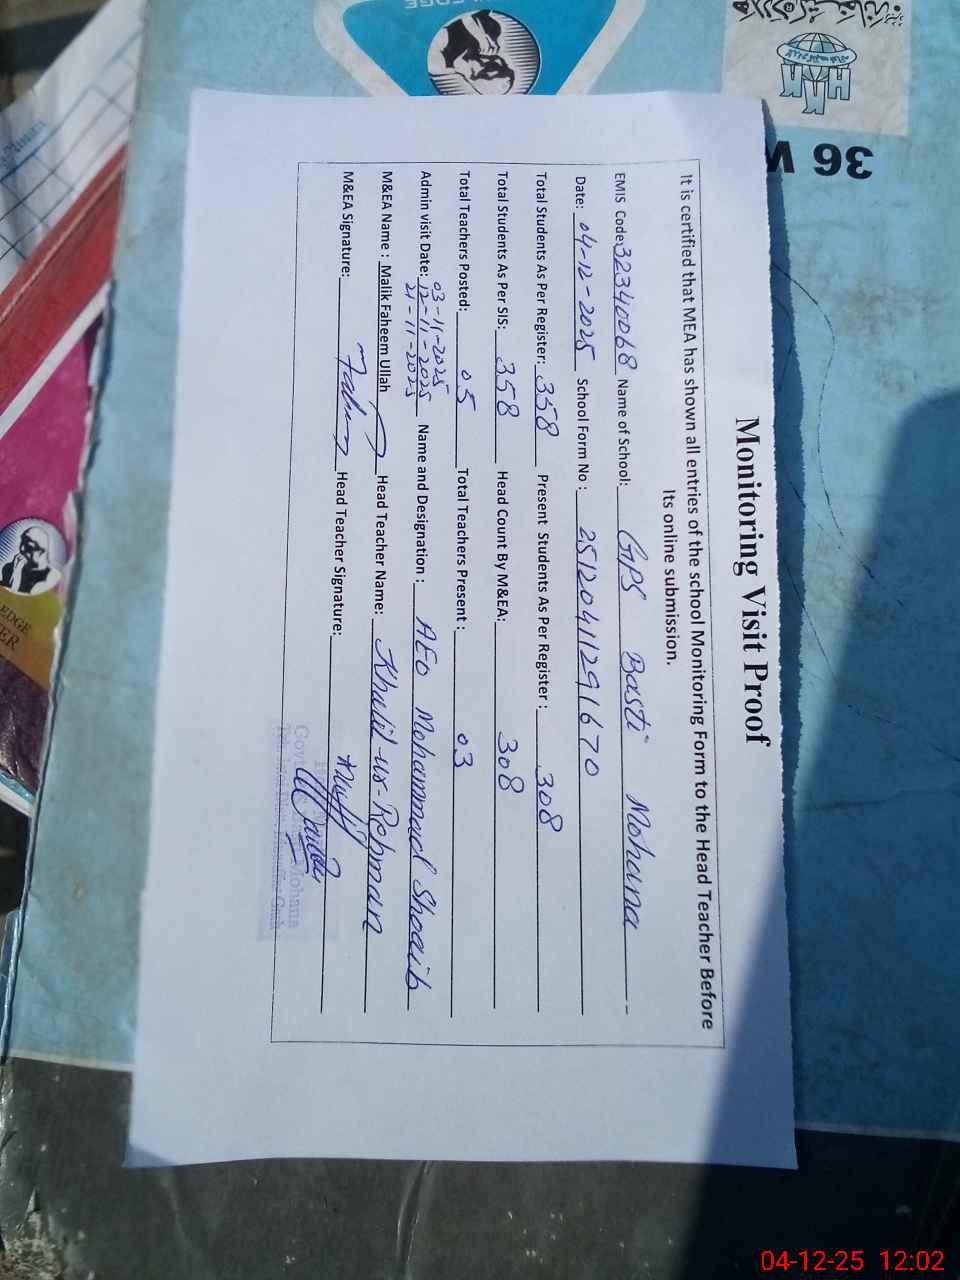 Monitoring Visit Proof
It is certified that MEA has shown all entries of the school Monitoring Form to the Head Teacher Before
Its online submission.
EMIS Code: 32340068 Name of School: GPS Basti Mohana
Date: 04-12-2025 School Form No: 251204112916 70
Total Students As Per Register: 358 Present Students As Per Register: 308
Total Students As Per SIS: 358 Head Count By M&EA: 308
Total Teachers Posted: 05 Total Teachers Present: 03
03-11-2025
Admin visit Date: 12-11-2025 Name and Designation: AEO Mohammad Shoaib
21-11-2025
M&EA Name: Malik Faheem Ullah Head Teacher Name: Khalil-ur-Rehman
M&EA Signature: Head Teacher Signature:
Mohana
36
HAK
EDGE
04-12-25 12:02